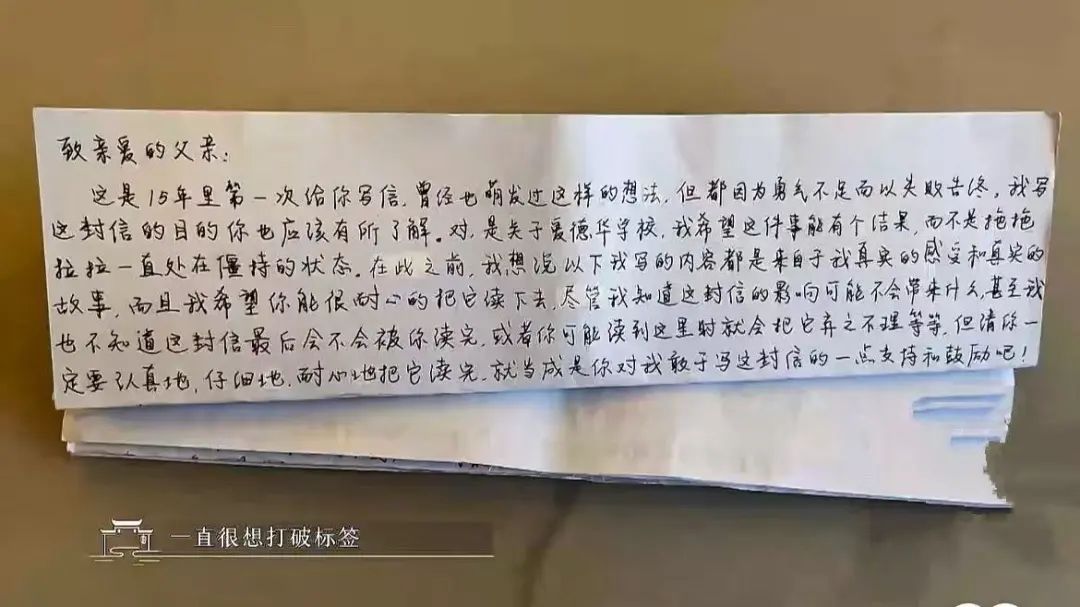 致亲爱的父亲：
这是15年里第一次给你写信，曾经也萌发过这样的想法，但都因为勇气不足而以失败告终，我写
这封信的目的你也应该有所了解。对，是关于爱德华学校，我希望这件事能有个结果，而不是拖拖
拉拉一直处在僵持的状态。在此之前，我想说以下我写的内容都是来自于我真实的感受和真实的
故事，而且我希望你能很耐心的把它读下去，尽管我知道这封信的影响可能不会带来什么，甚至我
也不知道这封信最后会不会被你读完，或者你可能读到这里时就会把它弃之不理等等，但请你一
定要认真地，仔细地，耐心地把它读完，就当成是你对我敢于写这封信的一点支持和鼓励吧！
一直很想打破标签